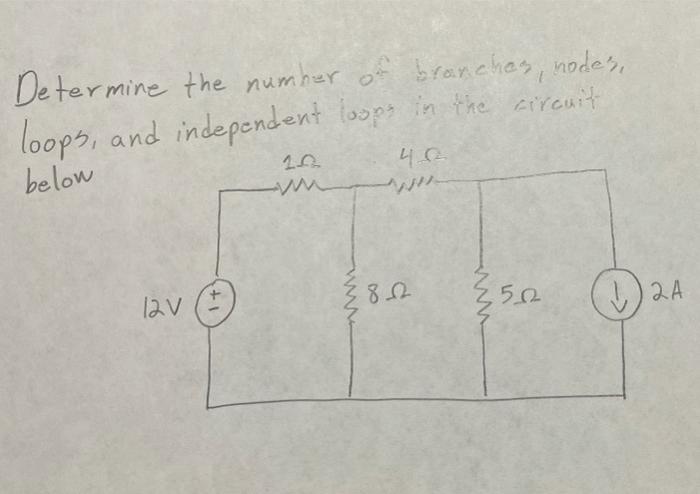 Determine the number of branches, nodes,
loops, and independent loops in the circuit
below
1Ω 4Ω
12V + - 8Ω 5Ω 2A